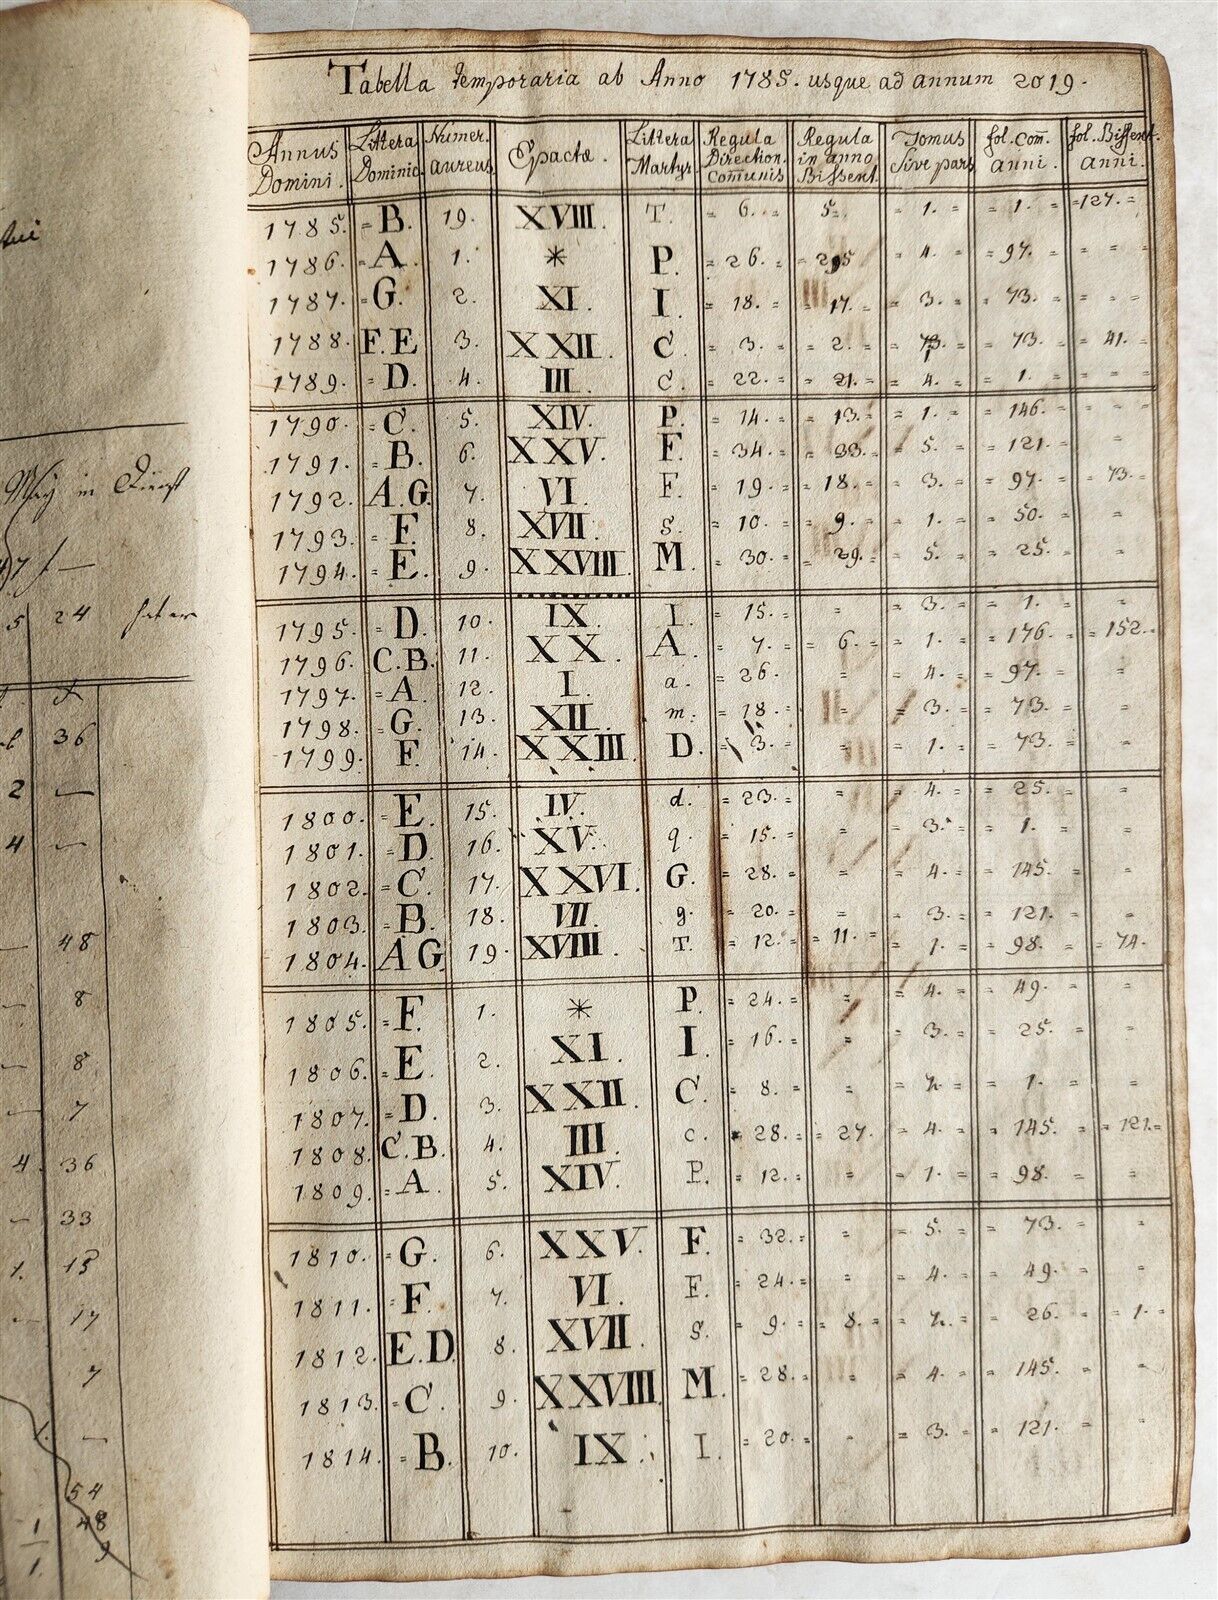 Tabella temporaria ab Anno 1785. usque ad annum 2019.
Annus Domini. Littera Dominic. Numer. aureus Epactæ. Littera Martyr. Regula Direction. Comunis Regula in anno Bissext. Tomus sive pars fol. Com. anni. fol. Bissext. anni.
1785. = B. 19. XVIII. T. = 6. = 5 = = 1. = = 1. = = 127. =
1786. = A. 1. * P. = 26. = = 25 = 4. = = 97. = = =
1787. = G. 2. XI. I. = 18. = = 17. = 3. = = 73. = = =
1788. F.E 3. XXII. C. = 3. = = 2. = = = 73. = = 41. =
1789. = D. 4. III. C. = 22. = = 21. = = 4. = = 1. = = =
1790. = C. 5. XIV. P. = 14. = = 13. = = 1. = = 146. = = =
1791. = B. 6. XXV. F. = 34. = = 33. = = 5. = = 121. = =
1792. A.G. 7. VI. F. = 19. = = 18. = = 3. = = 97. = = 73. =
1793. = F. 8. XVII. s. = 10. = = 9. = = 1. = = 50. = =
1794. = E. 9. XXVIII. M. = 30. = = 29. = = 5. = = 25. = =
1795. = D. 10. IX. I. = 15. = = = 3. = = 1. = =
1796. C.B. 11. XX. A. = 7. = = 6. = = 1. = = 176. = = 152. =
1797. = A. 12. I. a. = 26. = = 4. = = 97. = =
1798. = G. 13. XII. m. = 18. = = = 3. = = 73. = =
1799. F. 14. XXIII. D. 3. = = = 1. = = 73. = =
1800. = E. 15. IV. d. = 23. = = = 4. = = 25. = =
1801. = D. 16. XV. q. = 15. = = 3. = = 1. = =
1802. = C. 17. XXVI. G. = 28. = = = 4. = = 145. = =
1803. = B. 18. VII. g. = 20. = = = 3. = = 121. = =
1804. A G. 19. XVIII. T. = 12. = = 11. = = 1. = = 98. = = 74. =
1805. = F. 1. * P. = 24. = = = 4. = = 49. = =
1806. = E. 2. XI. I. = 16. = = = 3. = = 25. = =
1807. = D. 3. XXII. C. = 8. = = = = 1. = =
1808. C.B. 4. III. c. 28. = = 27. = 4. = = 145. = = 121. =
1809. = A. 5. XIV. P. = 12. = = = 1. = = 98. = =
1810. = G. 6. XXV. F. = 32. = = = 5. = = 73. = =
1811. = F. 7. VI. F. = 24. = = = 4. = = 49. = =
1812. E.D. 8. XVII. s. = 9. = = 8. = = = 26. = = 1. =
1813. = C. 9. XXVIII. M. = 28. = = = 4. = = 145. = =
1814. = B. 10. IX. I. = 20. = = = 3. = = 121. = =
May in Dienst
5 24
36
2
4
48
8
8
7
4 36
33
1. 15
17
7
54
1 48
9
1.